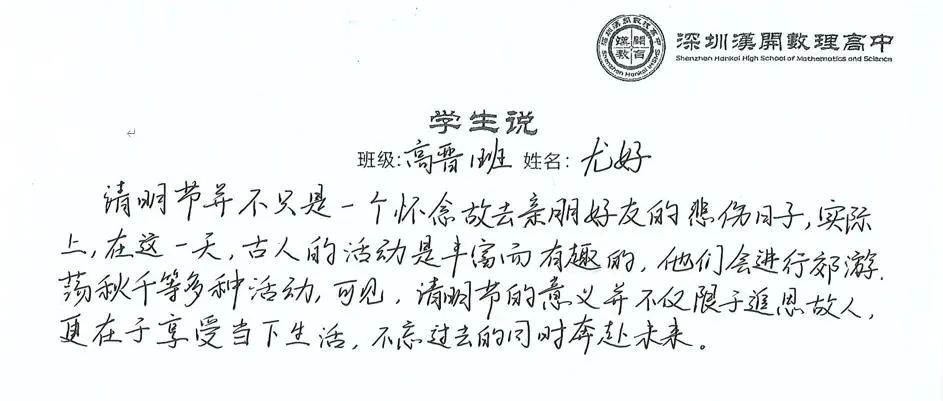 深圳漢開數理高中
Shenzhen Hankai High School of Mathematics and Science
漢開
教育
学生说
班级:高晋1班 姓名:尤好
清明节并不只是一个怀念故去亲朋好友的悲伤日子,实际
上,在这一天,古人的活动是丰富而有趣的,他们会进行郊游.
荡秋千等多种活动,可见,清明节的意义并不仅限于追思故人,
更在于享受当下生活,不忘过去的同时奔赴未来。